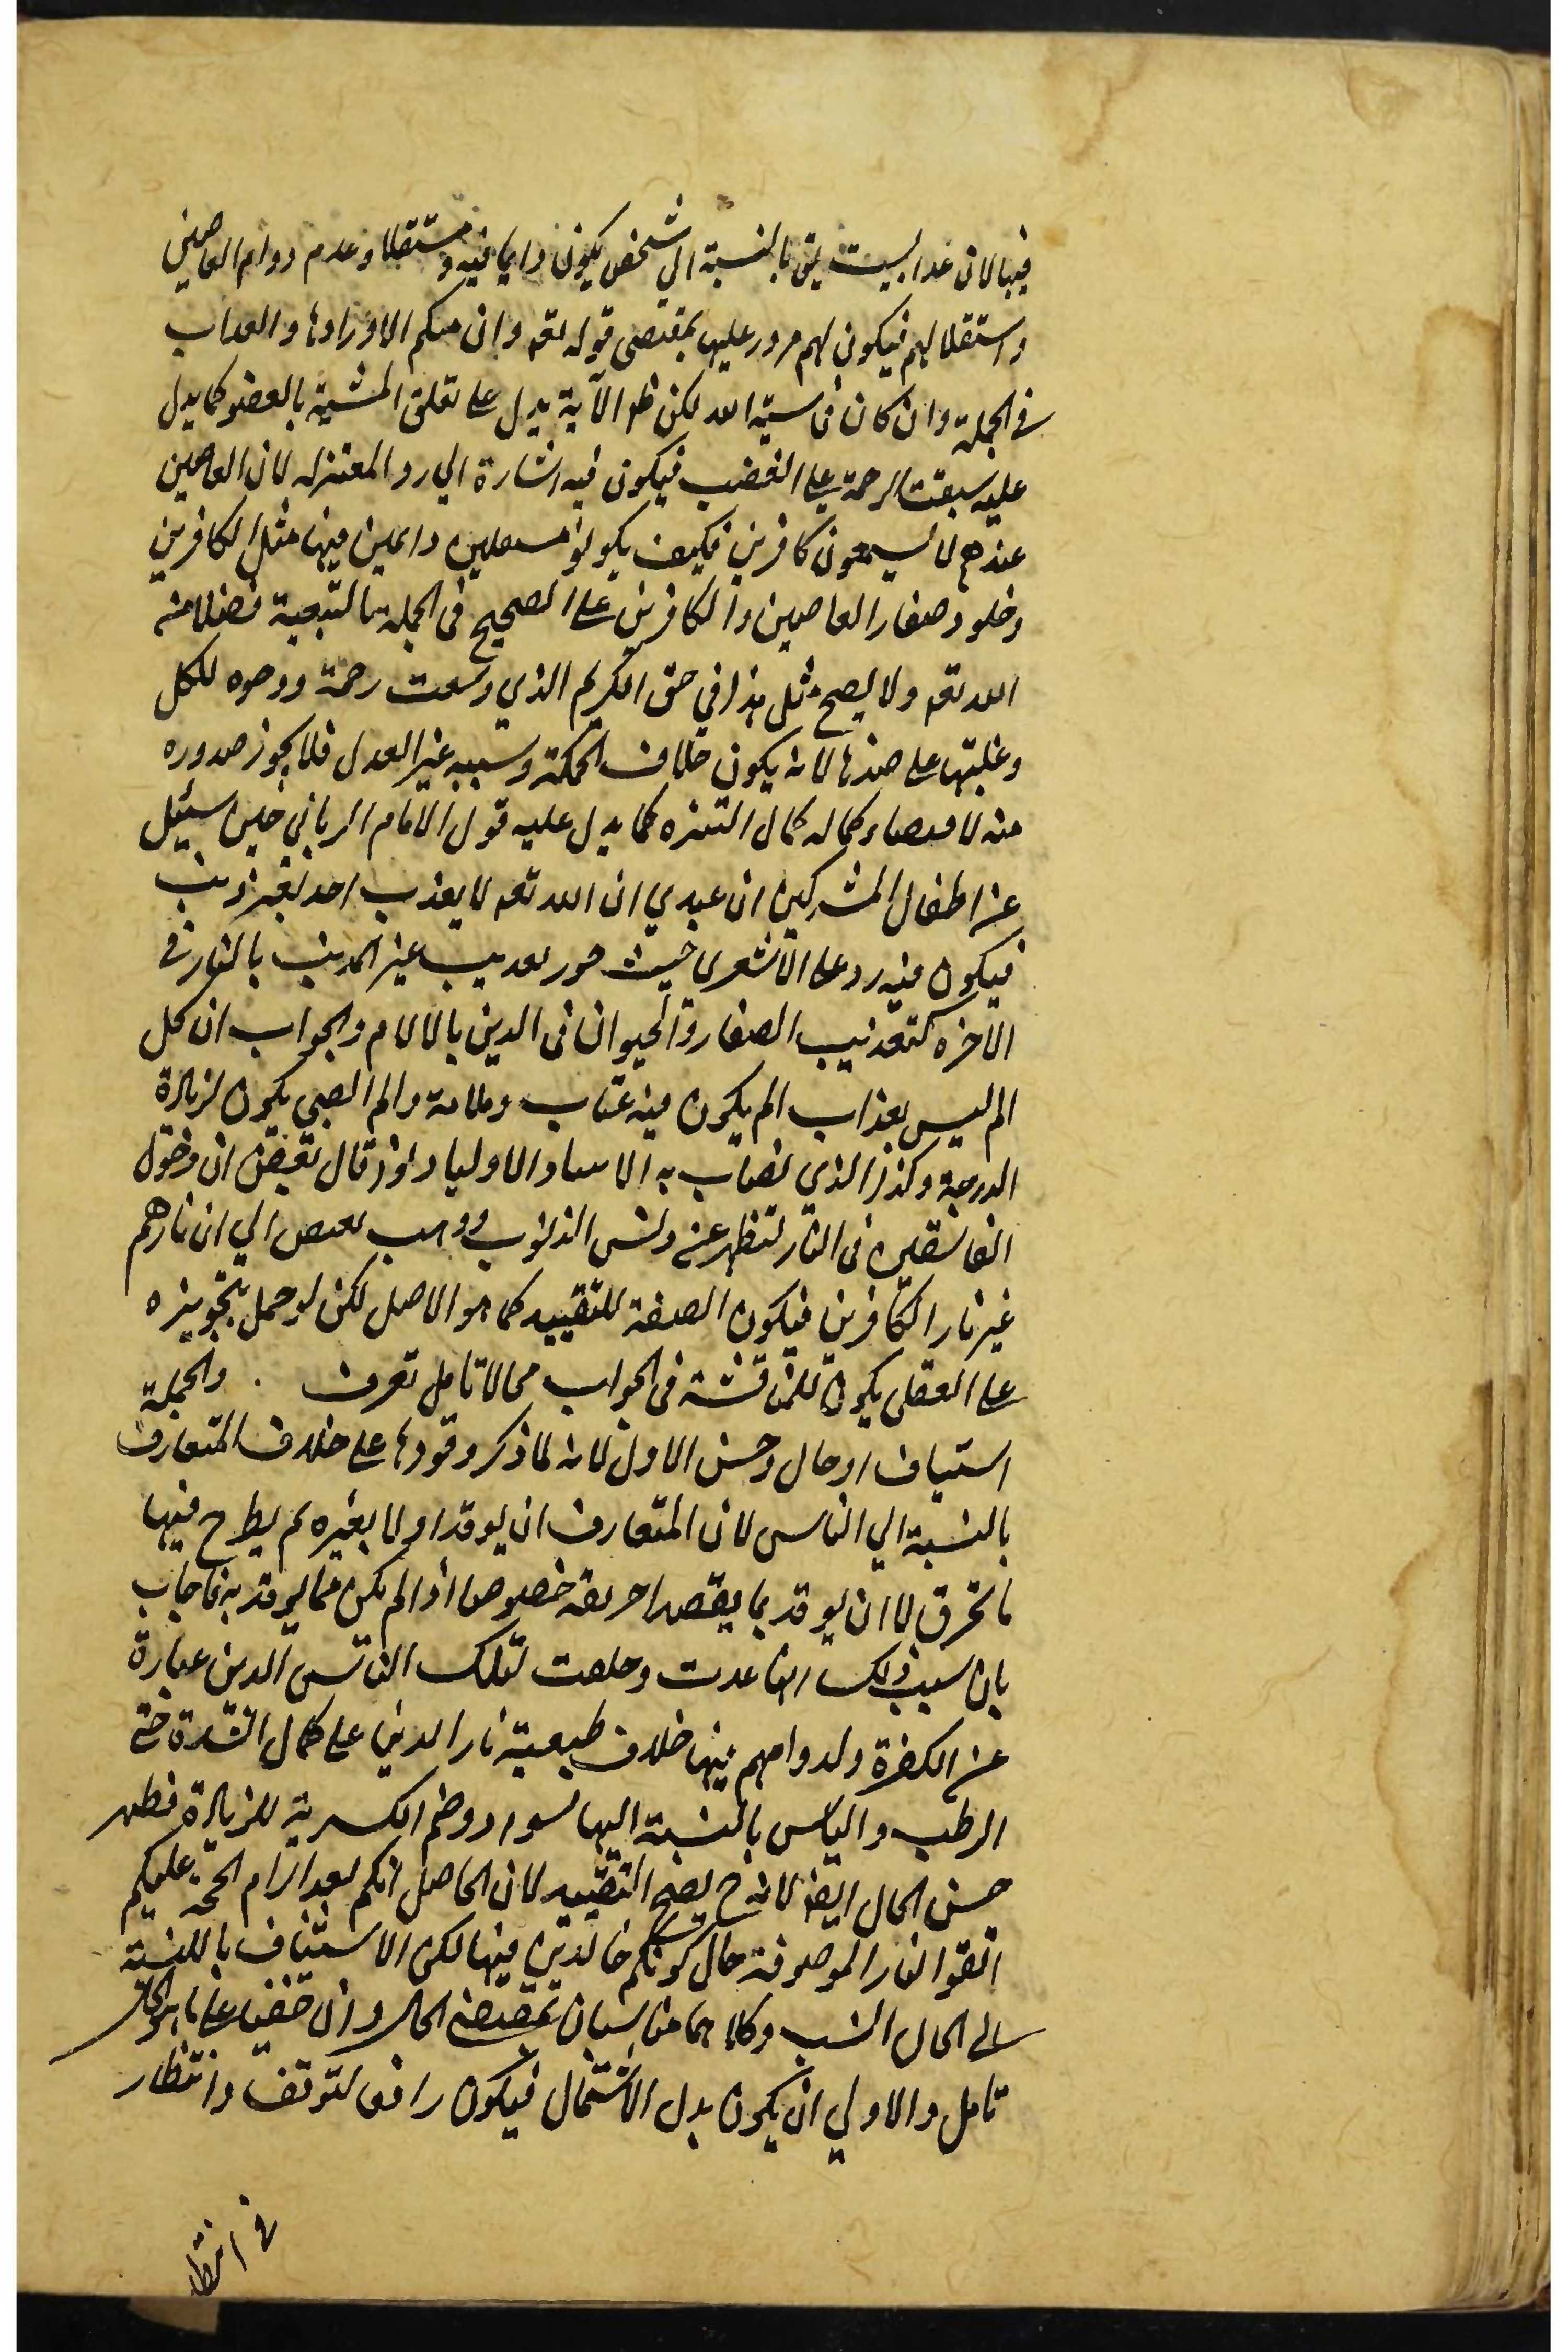 فيها لان عدا ليست يتق بالنسبة الي شخص يكون دايما فيه ومستقلا وعدم دوام العاصين
واستقلالهم فيكون لهم مرور عليها بمقتضى قوله تعه وان منكم الا واردها والعداب
في الجملة وان كان في مشية الله لكن ظه الآية يدل على تعلق المشية بالعفو كما يدل
عليه سبقت الرحمة على الغضب فيكون فيه اشارة الي رد المعتزله لان العاصين
عندهم لا يسمعون كافرين فكيف يكونوا مستقلين دايمين فيها مثل الكافرين
وخلود صغار العاصين والكافرين على الصحيح في الجملة بالتبعية فضلا منه
الله تعه ولا يصح مثل هذا في حق الكريم الذي وسعت رحمة وجوده للكل
وغلبتها على ضدها لانه يكون خلاف الحكمة وسببه غير العدل فلا يجوز صدوره
منه لاقتضاء كماله كمال التنزه كما يدل عليه قول الامام الرباني حين سئيل
عن اطفال المشركين ان عبدي ان الله تعه لا يعذب احد بغير ذنب
فيكون فيه رد على الاشعرى حيث جوز تعديب غير المذنب بالنار في
الاخره كتعذيب الصغار والحيوان في الدين بالالام والجواب ان كل
الم ليس بعذاب الم يكون فيه عتاب وملامة والم الصبي يكون لزيادة
الدرجة وكذا الذي يصاب به الانبياء والاولياء واذ قال بعض ان دخول
الفاسقين في النار لتطهر عن دنس الذنوب وذهب بعض الي ان نارهم
غير نار الكافرين فيكون الصفة للتقييد كما هو الاصل لكن لو حمل تجويزه
على العقلى يكون للمناقشة في الجواب محالا تامل تعرف . والجملة
استيناف او حال وحسن الاول لانه لما ذكر وقودها على خلاف المتعارف
بالنسبة الي الناس لان المتعارف ان يوقد اولا بغيره ثم يطرح فيها
ما تحرق لا ان يوقد بما يقصد احرقه خصوصا اذا لم يكن مما يوقد به فاجاب
بان سبب ذلك انها عدت وخلقت لتلك الناس الذين عبارة
عن الكفرة ولدوامهم فيها خلاف طبيعية نار الدين على كمال الشدة حتى
الرطب واليابس بالنسبة اليها سواء وضم الكبريه للزيادة فظهر
حسن الحال ايضه لانه ح يصح التقييد لان الحاصل انكم بعد الزام الحجة عليكم
اتقوا النار الموصوفة حال كونكم خالدين فيها لكن الاستئناف باللنسبة
الى الحال انسب وكلاهما مناسبان بمقتضى الحال وان خفيا على ناهي الحال
تامل والاولي ان يكون بدل الاشتمال فيكون رافعا لتوقف وانتظار
في انتظار